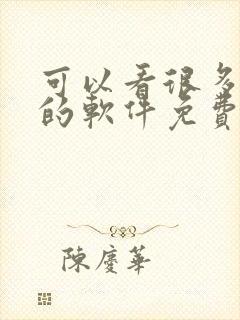 可以看很多
的軟件免費
陳慶華